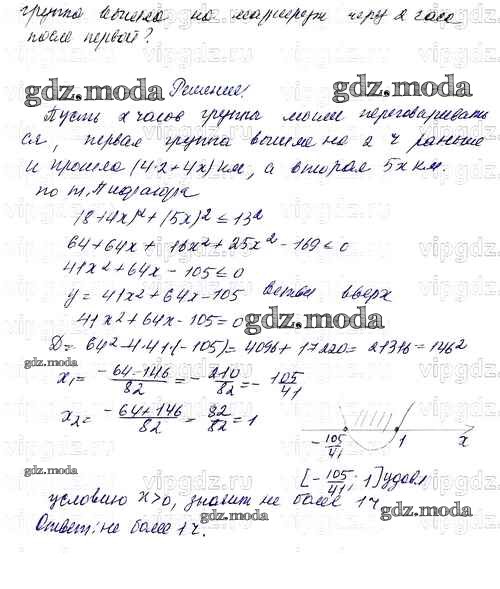 группа вышла на маршрут через 2 часа
после первой?
gdz.moda Решение! gdz.moda
Пусть x часов группа могли переговаривать
ся, первая группа вышла на 2 ч раньше
и прошла (4·2+4x) км, а вторая 5x км.
по т. Пифагора
(8+4x)²+(5x)² ≤ 13²
64+64x+16x²+25x²-169≤0
41x²+64x-105≤0
y=41x²+64x-105 ветви вверх
41x²+64x-105=0 gdz.moda
D=64²-4·41·(-105)=4096+17220=21316=146²
gdz.moda
x₁= (-64-146)/82 = -210/82 = -105/41
x₂= (-64+146)/82 = 82/82 = 1
-105/41 1 x
gdz.moda [-105/41; 1] удовл
условию x>0, значит не более 1 ч
Ответ: не более 1 ч.
gdz.moda gdz.moda